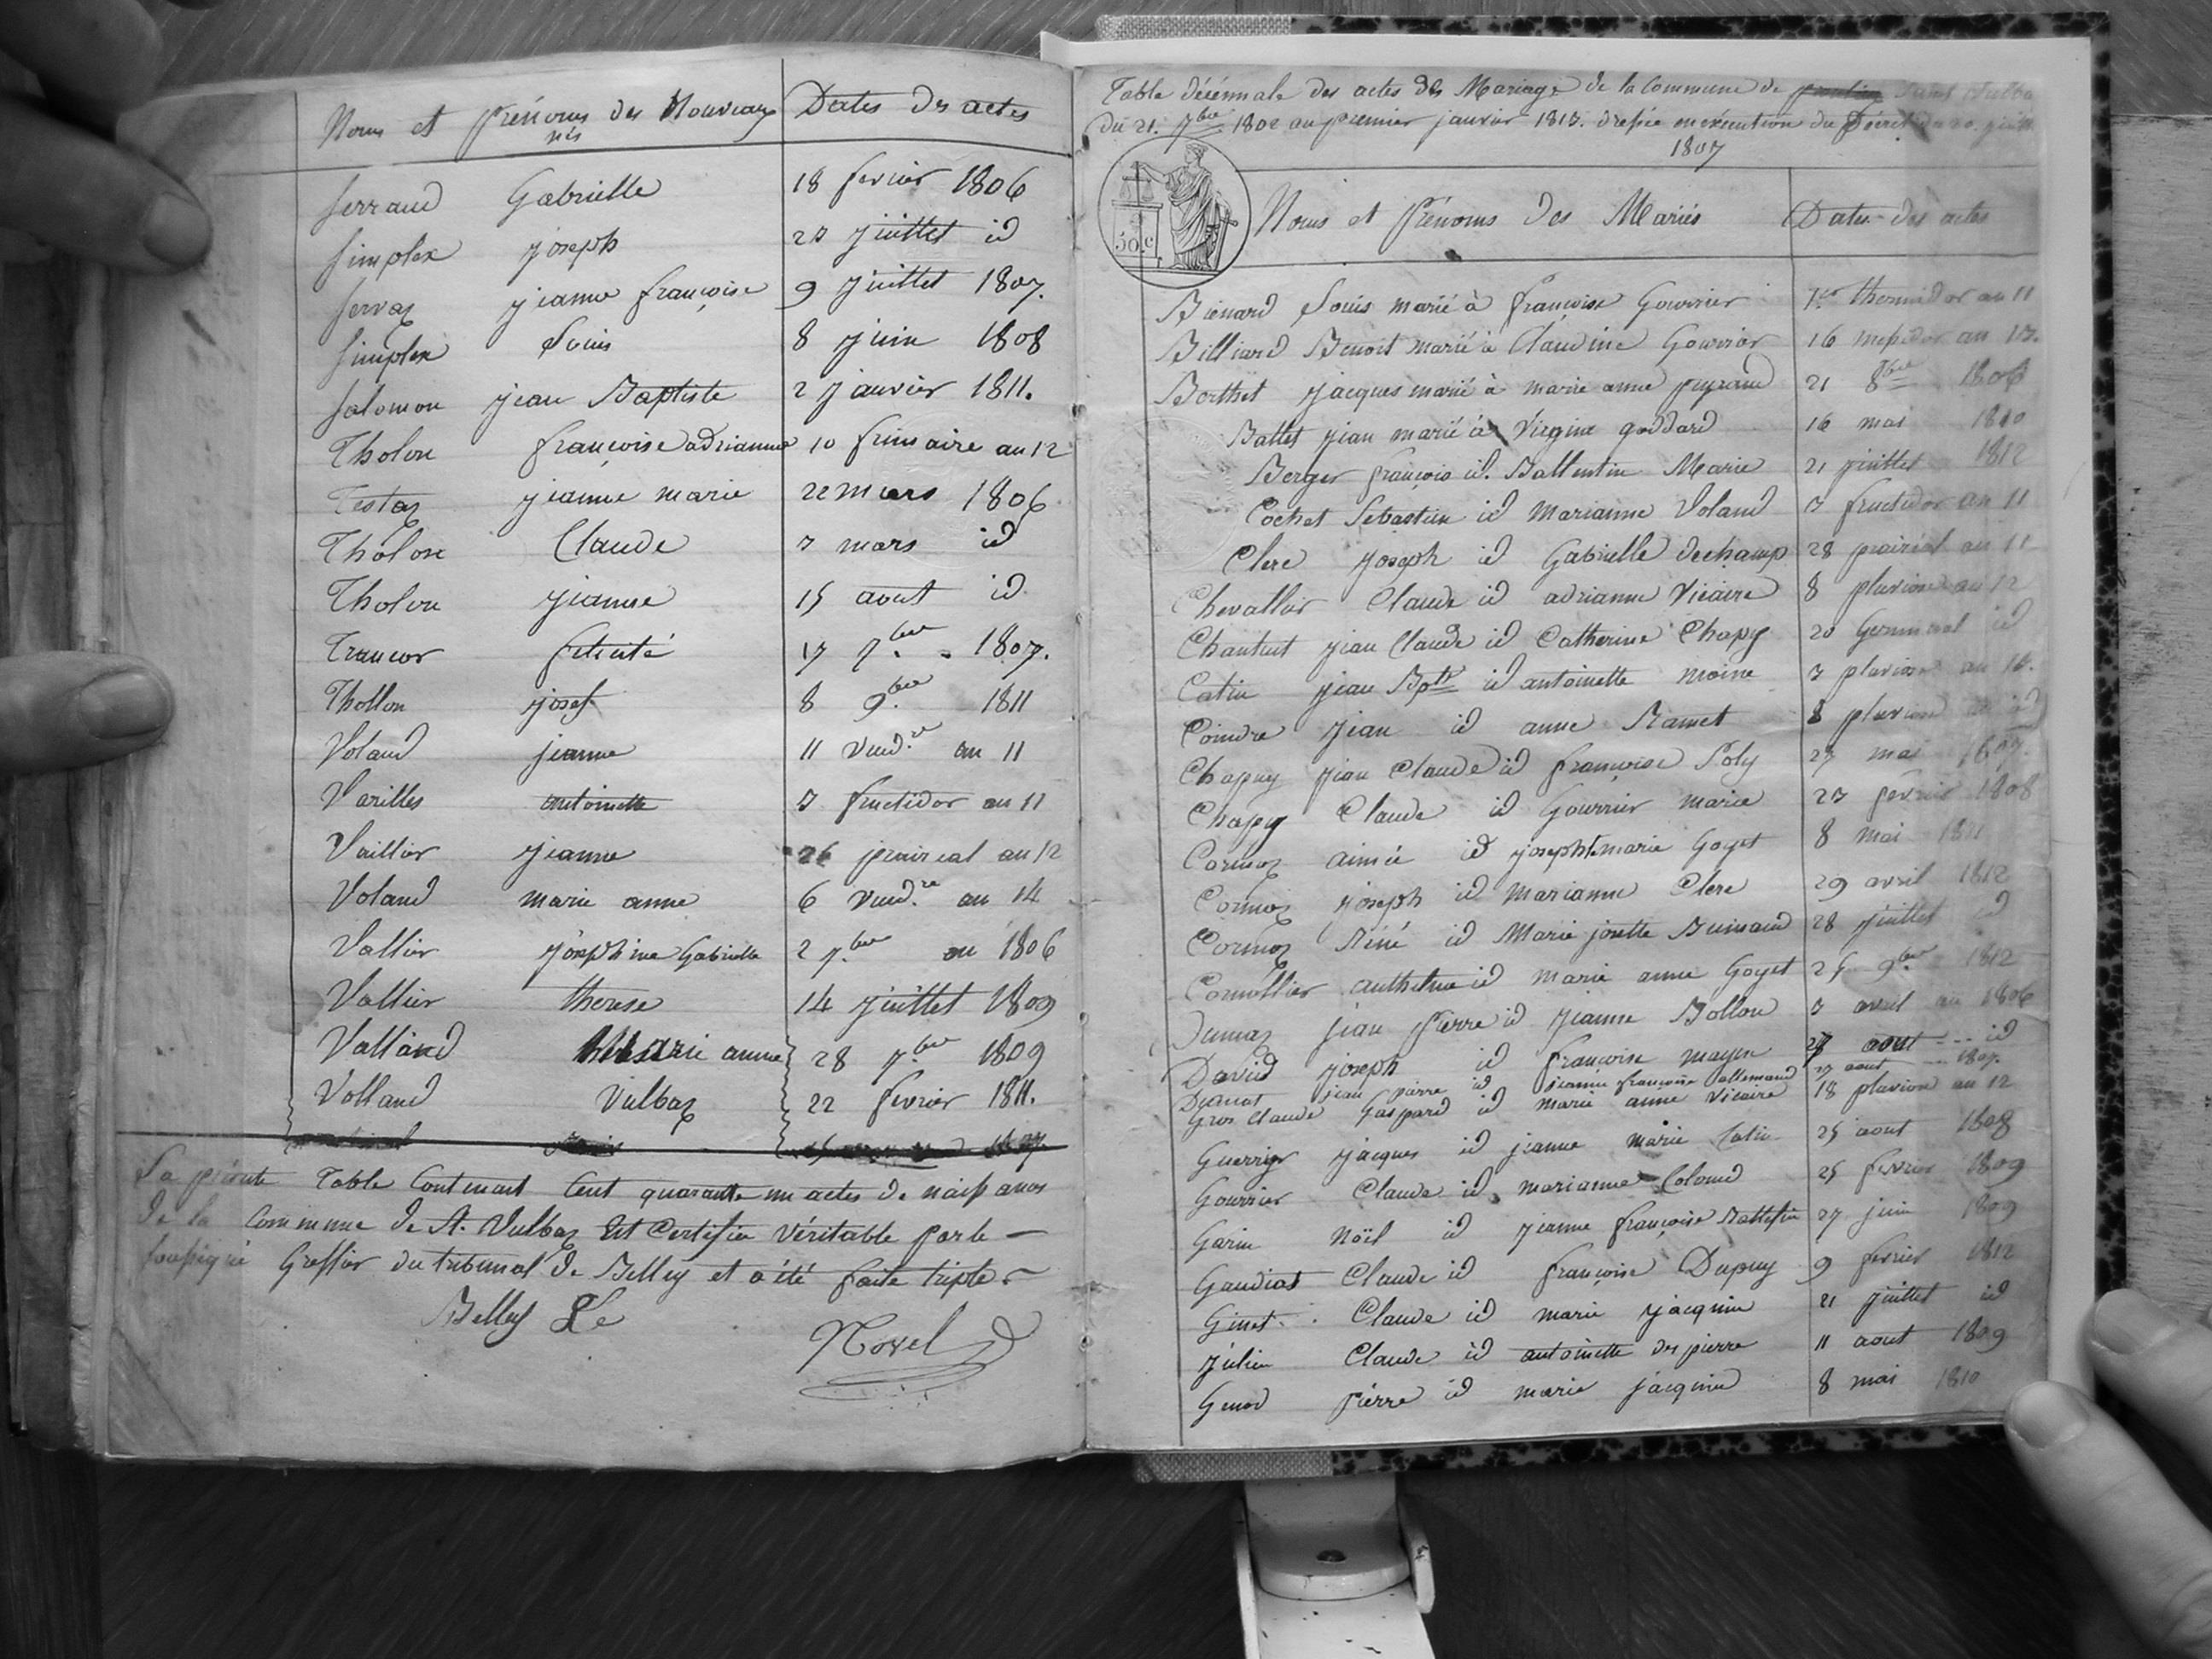 Noms et Prénoms des Nouveaux nés Dates des actes
Serraud Gabrielle 18 fevrier 1806
Simplex joseph 23 juillet id
Servaz jeanne françoise 9 juillet 1807.
Simplex Louis 8 juin 1808
Salomon jean Baptiste 2 janvier 1811.
Tholon françoise adrianne 10 frimaire an 12
Testaz jeanne marie 22 mars 1806
Tholon Claude 3 mars id
Tholon jeanne 15 aout id
felicité 17 7.bre 1807.
Thollon josef 8 9.bre 1811
Voland jeanne 11 vend.re an 11
Varilles antoinette 3 fructidor an 11
Vaillier jeanne 26 praireal an 12
Voland marie anne 6 vend.re an 14
Vallier joséphine Gabrielle 2 7.bre an 1806
Vallier therese 14 juillet 1809
Valland Marie anne 28 7.bre 1809
Volland Vulbaz 22 fevrier 1811.
La présente Table Contenant Cent quarante un actes de naissances
de la Commune de St. Vulbaz Est Certifiée Véritable par le
soussigné Greffier du tribunal de Belley et a été faite triple
Belley Le
Table décénnale des actes des Mariage de la Commune de Saint Vulba
du 21. 7bre 1802 au premier janvier 1813. dressée en exécution du Décret du 20. juillet
1807
50 c.
Noms et Prénoms des Mariés Dates des actes
Louis marié à françoise Gourrier 1.er thermidor an 11
Billiard Benoit marié à Claudine Gourrier 16 messidor an 13.
Berthet jacques marié à marie anne peyraud 21 8bre
Battet jean marié à Virginie goddard 16 mai 1810
Berger françois id. Ballentin Marie 21 juillet 1812
Cochet Sebastien id Marianne Voland 3 fructidor an 11
Clere joseph id Gabrielle dechamp 28 prairéal an 11
Chevallier Claude id adrianne Vicaire 8 pluviose an 12
jean Claude id Catherine Chapy 20 Germinal id
Catin jean Bpte id antoinette moine 3 pluviose an
Coindre jean id anne Ramet 8 pluviose id
Chapuy jean Claude id françoise Poly 27 mai 1807.
Chapy Claude id Gourrier marie 23 fevrier 1808
Cormoz aimée id marie Goyet 8 mai 1811
Cormoz joseph id Marianne Clere 29 avril 1812
Cormoz Réné id Marie josette 28 juillet d
Cornollier anthelme id marie anne Goyet 25 9bre 1812
Dumaz jean Pierre id jeanne Bollon 3 avril an 1806
David joseph id françoise mayen aout id
jean pierre id jeanne françoise allemand aout 1807.
Gros Claude Gaspard id marie anne Vicaire 18 pluviose an 12
Guerrier jacques id jeanne marie Catin 25 aout 1808
Gourrier Claude id marianne Colomd 25 fevrier 1809
Garin Nöel id jeanne françoise 27 juin 1809
Gaudiat Claude id françoise Dupuy 9 fevrier 1812
Ginet Claude id marie jacquin 21 juillet id
julien Claude id antoinette des pierre 11 aout 1809
Genod Pierre id marie jacquin 8 mai 1810